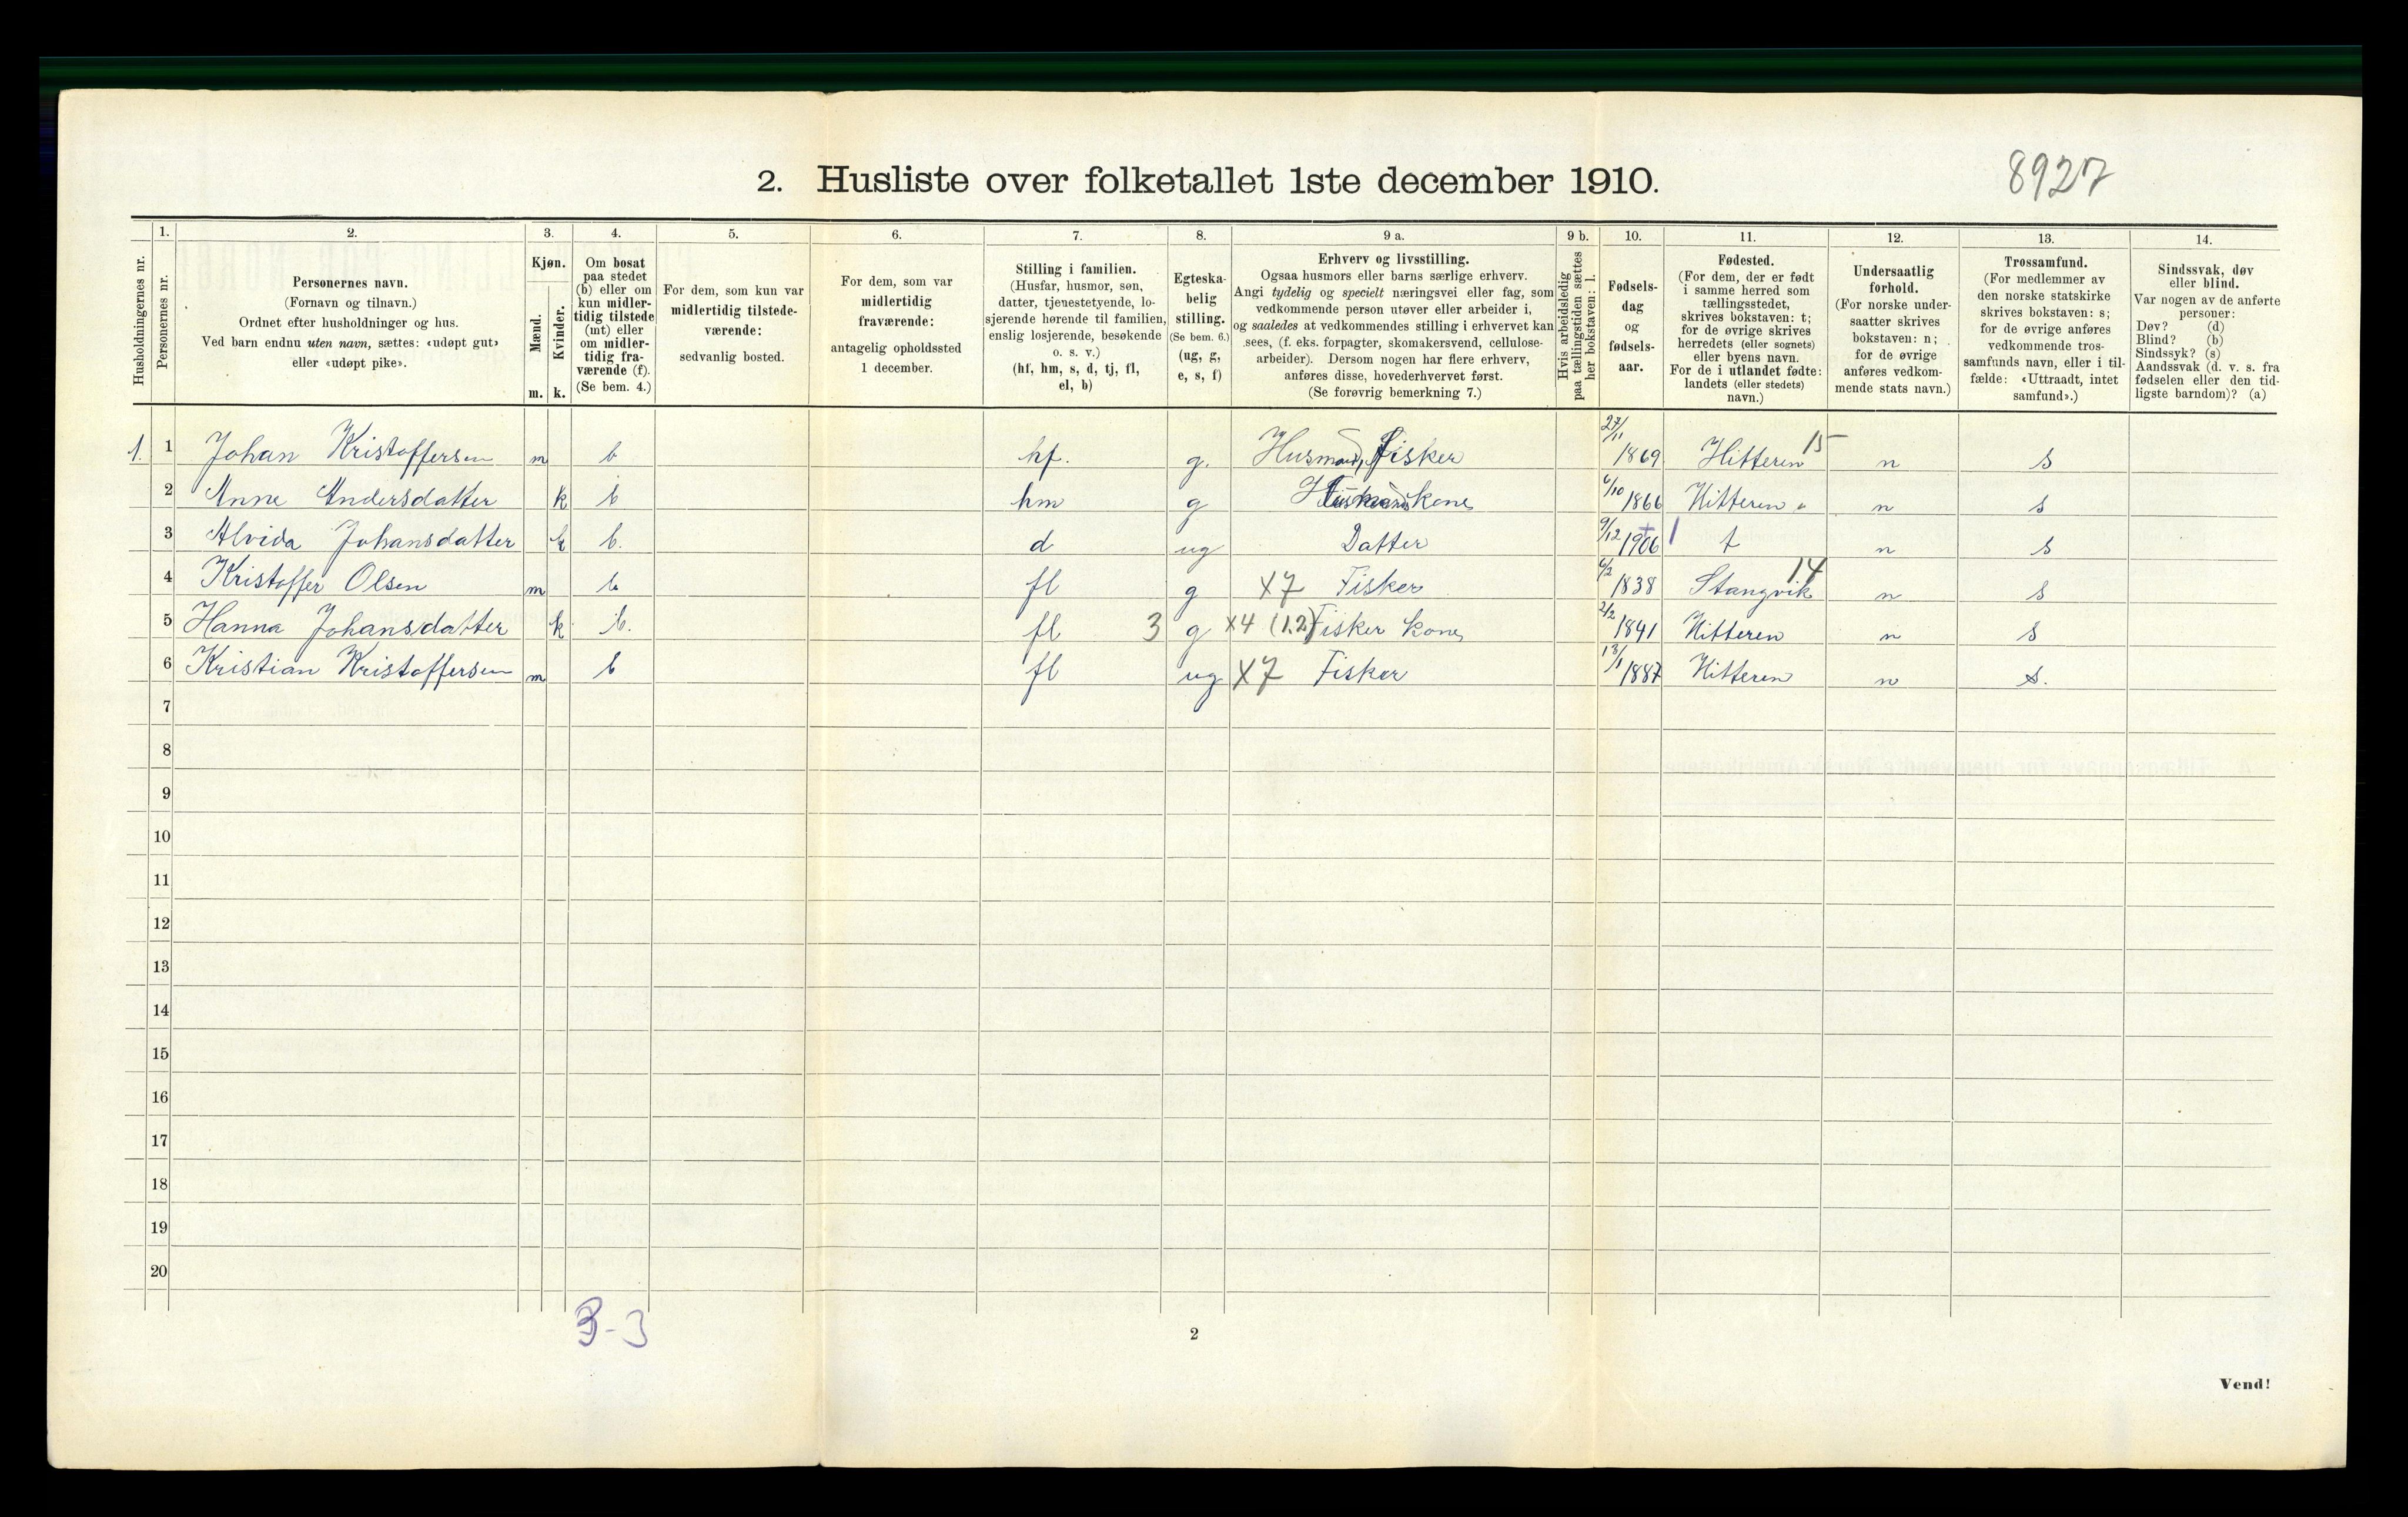 8927
2. Husliste over folketallet 1ste december 1910.
Husholdningernes nr.
1.
Personernes nr.
2.
Personernes navn.
(Fornavn og tilnavn.)
Ordnet efter husholdninger og hus.
Ved barn endnu uten navn, sættes: «udøpt gut»
eller «udøpt pike».
3.
Kjøn.
Mænd.
Kvinder.
m. k.
4.
Om bosat
paa stedet
(b) eller om
kun midler-
tidig tilstede
(mt) eller
om midler-
tidig fra-
værende (f).
(Se bem. 4.)
5.
For dem, som kun var
midlertidig tilstede-
værende:
sedvanlig bosted.
6.
For dem, som var
midlertidig
fraværende:
antagelig opholdssted
1 december.
7.
Stilling i familien.
(Husfar, husmor, søn,
datter, tjenestetyende, lo-
sjerende hørende til familien,
enslig losjerende, besøkende
o. s. v.)
(hf, hm, s, d, tj, fl,
el, b)
8.
Egteska-
belig
stilling.
(Se bem. 6.)
(ug, g,
e, s, f)
9 a.
Erhverv og livsstilling.
Ogsaa husmors eller barns særlige erhverv.
Angi tydelig og specielt næringsvei eller fag, som
vedkommende person utøver eller arbeider i,
og saaledes at vedkommendes stilling i erhvervet kan
sees, (f. eks. forpagter, skomakersvend, cellulose-
arbeider). Dersom nogen har flere erhverv,
anføres disse, hovederhvervet først.
(Se forøvrig bemerkning 7.)
9 b.
Hvis arbeidsledig
paa tællingstiden sættes
her bokstaven: l.
10.
Fødsels-
dag
og
fødsels-
aar.
11.
Fødested.
(For dem, der er født
i samme herred som
tællingsstedet,
skrives bokstaven: t;
for de øvrige skrives
herredets (eller sognets)
eller byens navn.
For de i utlandet fødte:
landets (eller stedets)
navn.)
12.
Undersaatlig
forhold.
(For norske under-
saatter skrives
bokstaven: n;
for de øvrige
anføres vedkom-
mende stats navn.)
13.
Trossamfund.
(For medlemmer av
den norske statskirke
skrives bokstaven: s;
for de øvrige anføres
vedkommende tros-
samfunds navn, eller i til-
fælde: «Uttraadt, intet
samfund».)
14.
Sindssvak, døv
eller blind.
Var nogen av de anførte
personer:
Døv? (d)
Blind? (b)
Sindssyk? (s)
Aandssvak (d. v. s. fra
fødselen eller den tid-
ligste barndom)? (a)
1. 1 Johan Kristoffersen m b hf. g. Husmand, Fisker 27/11 1869 Hitteren 15 n s
2 Anne Andersdatter k b hm g kone 6/10 1866 Hitteren " n s
3 Alvida Johansdatter k b. d ug Datter 9/12 1906 1 t n s
4 Kristoffer Olsen m b fl g X7 Fisker 6/2 1838 Stangvik 14 n s
5 Hanna Johansdatter k b. fl 3 g X4 (1.2) Fisker kone 2/2 1841 Hitteren n s
6 Kristian Kristoffersen m b fl ug X7 Fisker 13/1 1887 Hitteren n s.
7
8
9
10
11
12
13
14
15
16
17
18
19
20
3-3
2
Vend!